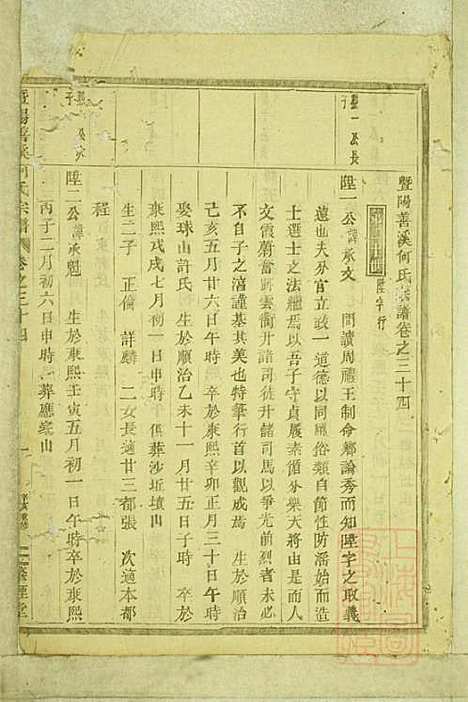 暨陽善溪何氏宗譜卷之三十四
陞字行
陞一公諱承文 間讀周禮王制命鄉論秀而知陞字之取義
遠也夫分官立政一道德以同風俗類自節性防淫始而造
士選士之法繼焉以吾子守貞履素循分樂天將由是而人
文霞蔚奮跡雲衢升諸司徒升諸司馬以爭光前烈者未必
不自子之濬謹基其美也特筆行首以觀成焉 生於順治
己亥五月廿六日午時 卒於康熙辛卯正月三十日午時
娶球山許氏 生於順治乙未十一月廿五日子時 卒於
康熙戊戌七月初一日申時 俱葬沙坵墳山
生二子 正倫 詳麟 二女長適廿三都張 次適本都
程
陞二公諱承魁 生於康熙壬寅五月初一日午時卒於康熙
丙子二月初六日申時 葬應家山
公長
子
暨陽善溪何氏宗譜 卷之三十四